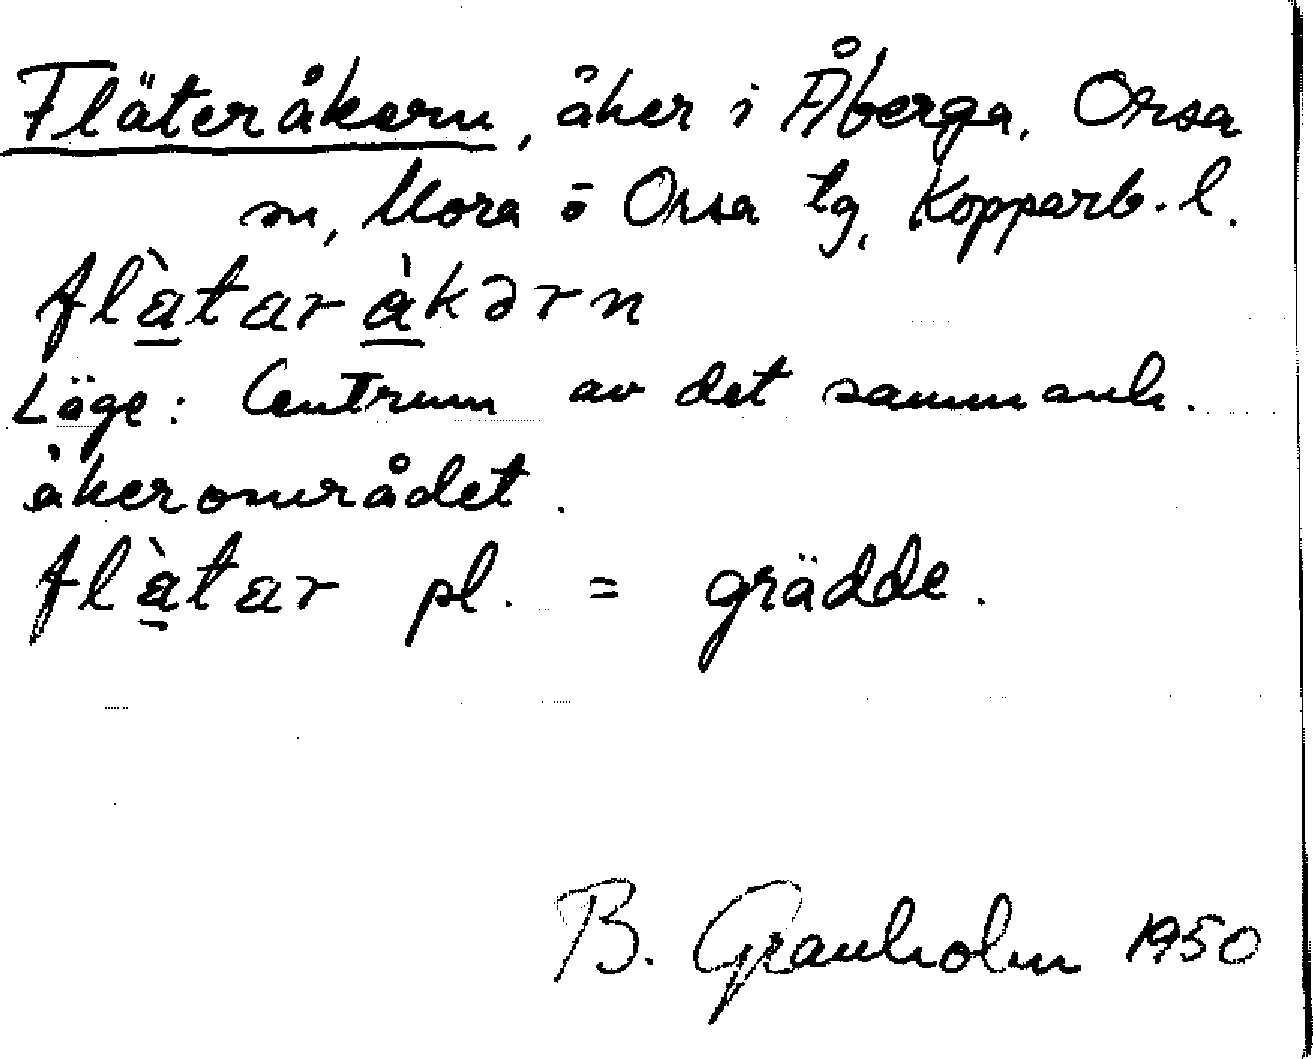 Fläteråkern, åker i Åberga, Orsa
sn, Mora o Orsa tg, Kopparb. l.
flàtar àkərn
Läge: Centrum av det sammanh.
åkerområdet.
flàtar pl. = grädde.
B. Granholm 1950